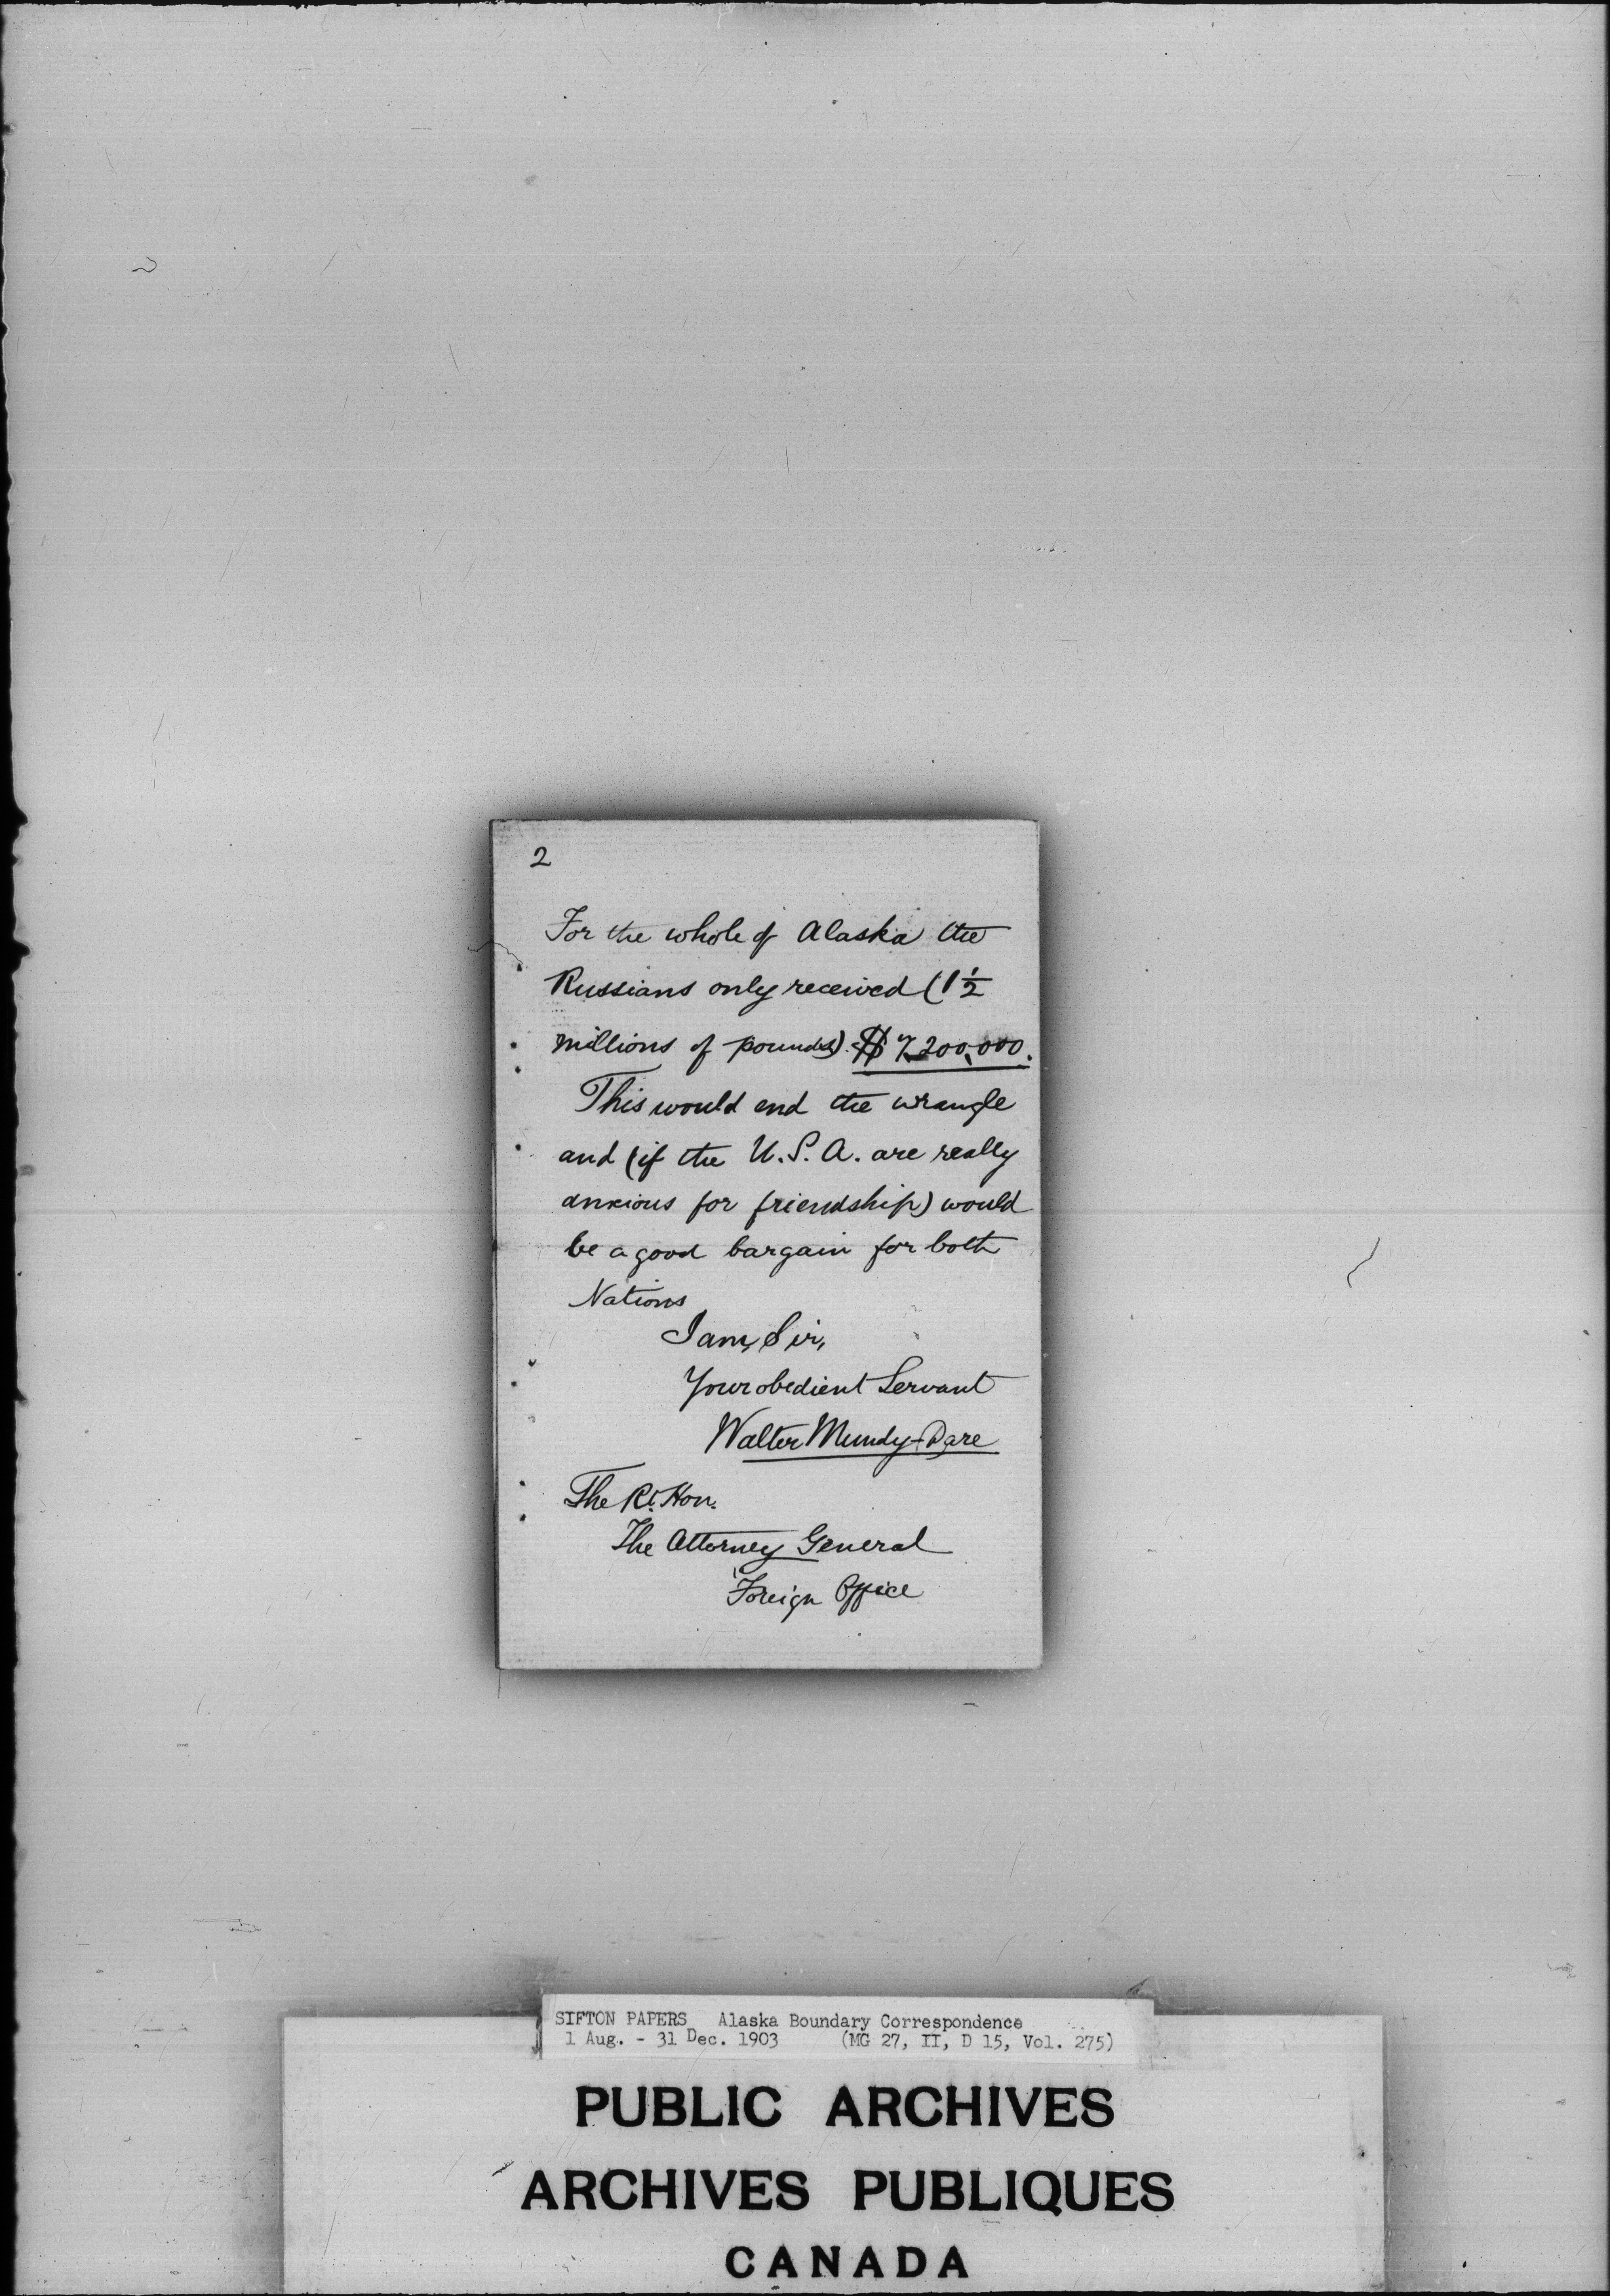 2
For the whole of Alaska the
Russians only received (1½
millions of pounds). $7,200,000.
This would end the wrangle
and (if the U.S.A. are really
anxious for friendship) would
be a good bargain for both
Nations
I am, Sir,
Your obedient Servant
Walter Mundy-Dare
The Rt. Hon.
The Attorney General
Foreign Office
SIFTON PAPERS Alaska Boundary Correspondence
1 Aug. - 31 Dec. 1903 (MG 27, II, D 15, Vol. 275)
PUBLIC ARCHIVES
ARCHIVES PUBLIQUES
CANADA